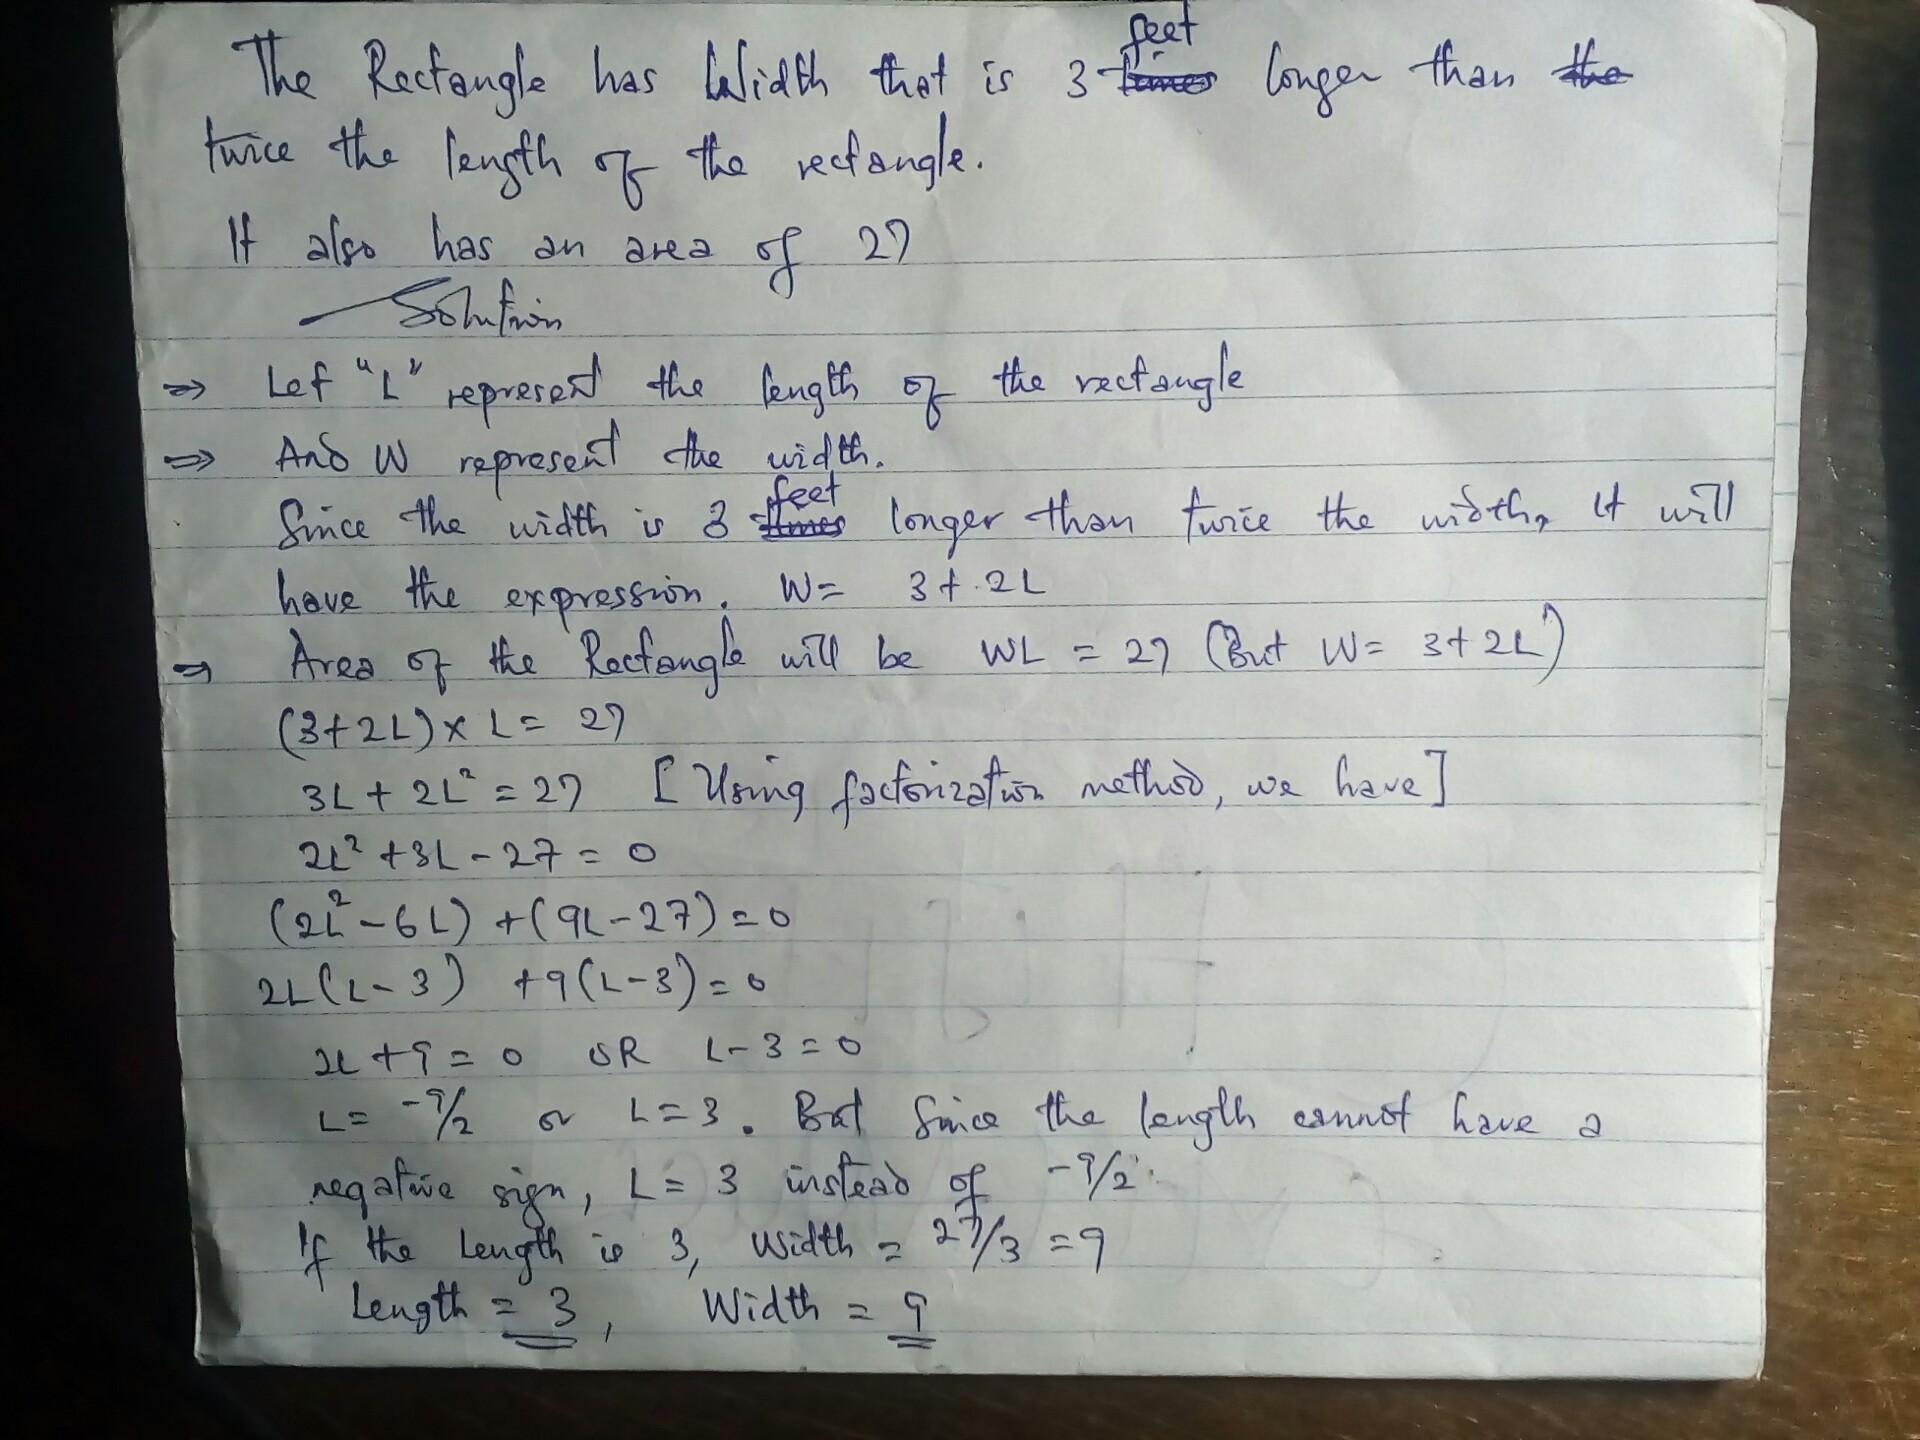 The Rectangle has Width that is 3 feet longer than
twice the length of the rectangle.
It also has an area of 27
Solution
⇒ Let "L" represent the length of the rectangle
⇒ And W represent the width.
Since the width is 3 feet longer than twice the width, it will
have the expression. W = 3 + 2L
⇒ Area of the Rectangle will be WL = 27 (But W = 3 + 2L)
(3+2L) × L = 27
3L + 2L² = 27 [Using factorization method, we have]
2L² + 3L - 27 = 0
(2L² - 6L) + (9L - 27) = 0
2L(L - 3) + 9(L - 3) = 0
2L + 9 = 0 OR L - 3 = 0
L = -9/2 or L = 3. But Since the length cannot have a
negative sign, L = 3 instead of -9/2.
If the Length is 3, Width = 27/3 = 9
Length = 3, Width = 9